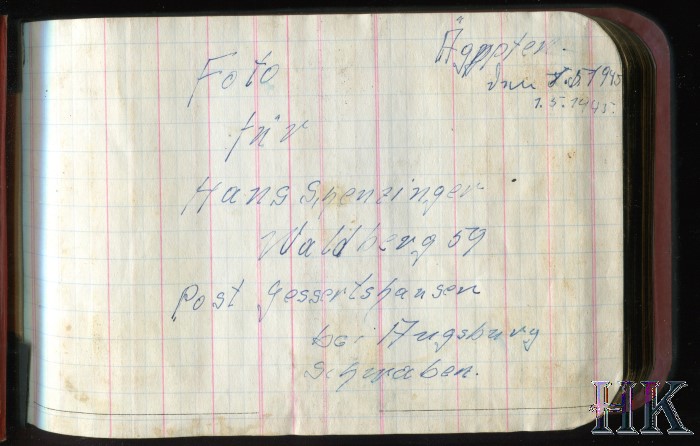 Ägypten.
den 1.5.1945
1.5.1945.
Foto
für
Hans Spenzinger
Waldberg 59
Post Gessertshausen
bei Augsburg
Schwaben.
HK